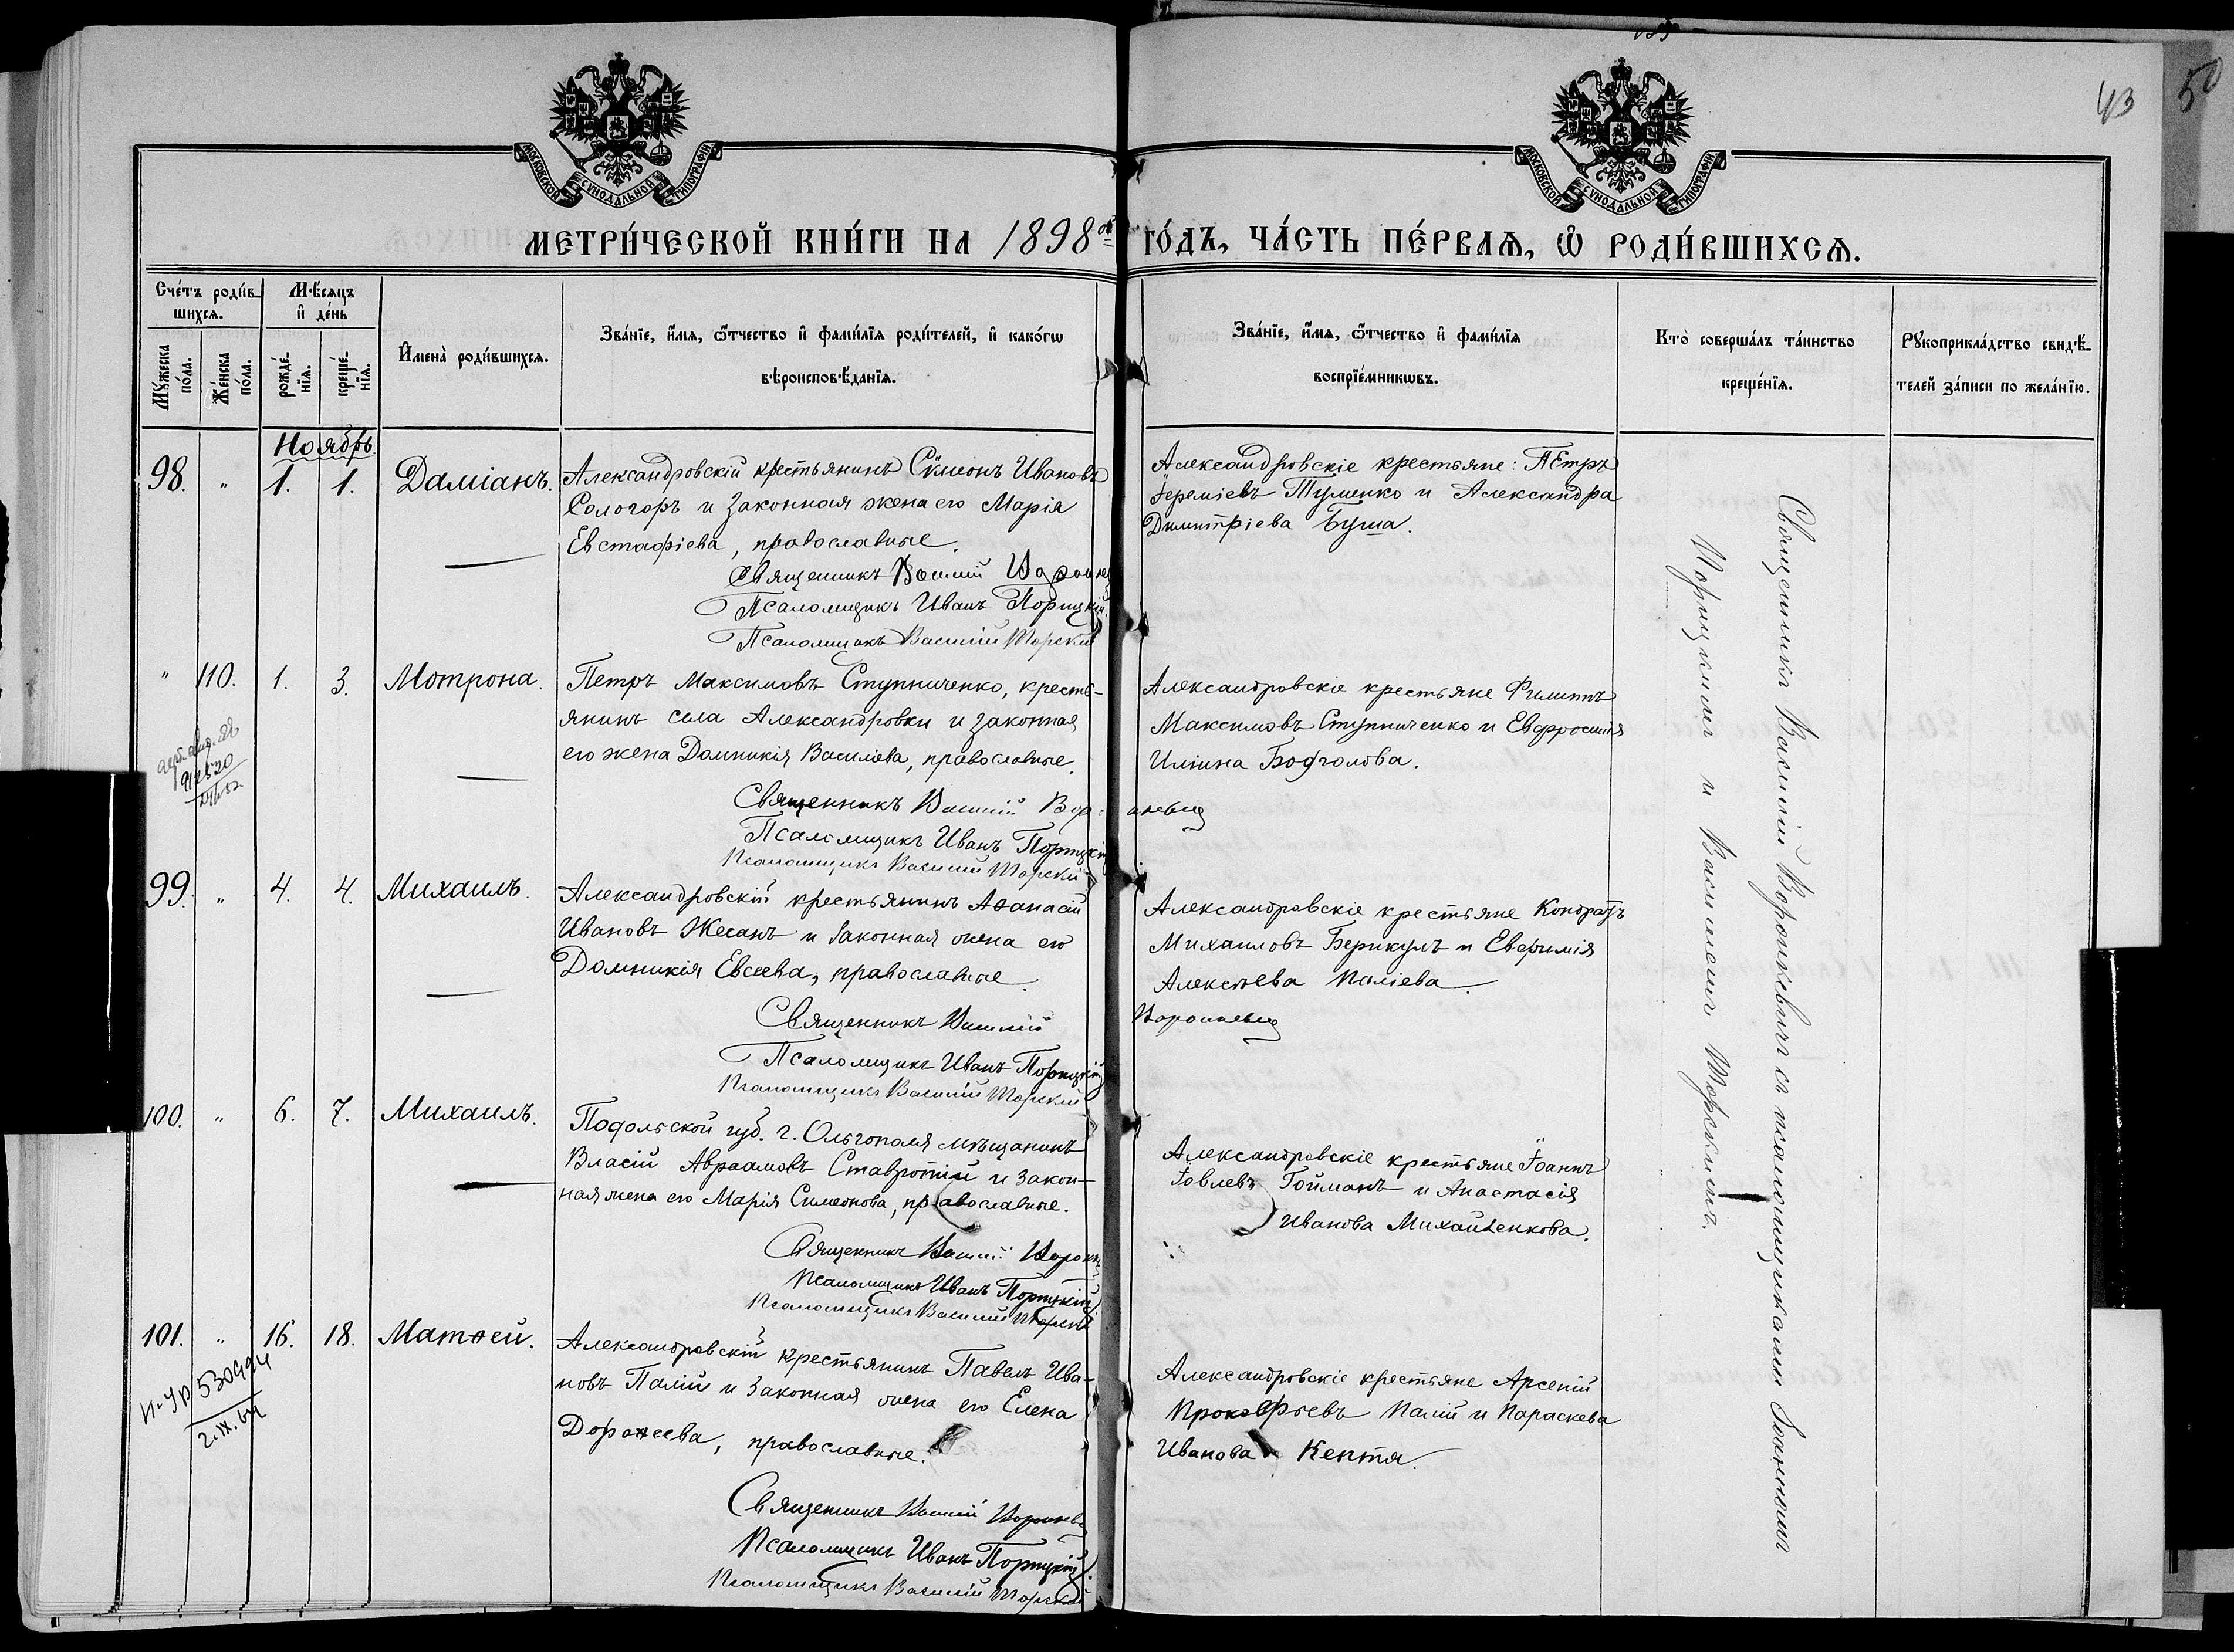 43
50
МОСКОВСКОЙ СѴНОДАЛЬНОЙ ТИПОГРАФІИ
МОСКОВСКОЙ СѴНОДАЛЬНОЙ ТИПОГРАФІИ
МЕТРИ́ЧЕСКОЙ КНИ́ГИ НА 1898 ГО́ДЪ, ЧА́СТЬ ПЕ́РВАѦ, Ѡ҆ РОДИ́ВШИХСѦ.
Сче́тъ роди́в-
шихсѧ.
Мѣ́сѧцъ
и҆ де́нь
Мꙋ́жеска
по́ла.
Же́нска
по́ла.
рожде́-
нїѧ.
креще́-
нїѧ.
И҆мена̀ роди́вшихсѧ.
Зва́нїе, и҆́мѧ, ѻ҆́тчество и҆ фами́лїѧ роди́телей, и҆ како́гѡ
вѣроисповѣ́данїѧ.
Зва́нїе, и҆́мѧ, ѻ҆́тчество и҆ фами́лїѧ
воспрїе́мникѡвъ.
Кто̀ соверша́лъ та́инство
креще́нїѧ.
Рꙋкоприкла́дство свидѣ́-
телей за́писи по жела́нїю.
Ноябрь.
98. " 1. 1. Даміанъ.
Александровскій крестьянинъ Сѵмеонъ Ивановъ
Сологоръ и законная жена его Марія
Евстафіева, православные.
Священникъ Василій
Псаломщикъ Иванъ Порицкій
Псаломщикъ Василій Торскій
Александровскіе крестьяне: Петръ
Іереміевъ Туменко и Александра
Димитріева Буша.
" 110. 1. 3. Мотрона.
Петръ Максимовъ Ступниченко, кресть-
янинъ села Александровки и законная
его жена Домникія Василіева, православные.
Священникъ Василій Воронкевич
Псаломщикъ Иванъ Порицкій
Псаломщикъ Василій Торскій
Александровскіе крестьяне Филиппъ
Максимовъ Ступниченко и Евфросинія
Иліина Бодголова.
912520
99. " 4. 4. Михаилъ.
Александровскій крестьянинъ Аѳанасій
Ивановъ Жесанъ и законная жена его
Домникія Евсеева, православные.
Священникъ Василій Воронкевич
Псаломщикъ Иванъ Порицкій
Псаломщикъ Василій Торскій
Александровскіе крестьяне Кондратъ
Михаиловъ Берикулъ и Евфимія
Алексѣева Паліева.
100. " 6. 7. Михаилъ.
Подольской губ. г. Ольгополя мѣщанинъ
Власій Авраамовъ Ставротій и закон-
ная жена его Марія Симеонова, православные.
Священникъ Василій
Псаломщикъ Иванъ Порицкій
Псаломщикъ Василій Торскій
Александровскіе крестьяне Іоаннъ
Іовлевъ Гойманъ и Анастасія
Иванова Михайленкова.
101. " 16. 18. Матѳей.
Александровскій крестьянинъ Павелъ Ива-
новъ Палій и законная жена его Елена
Дороѳеева, православные.
Священникъ Василій
Псаломщикъ Иванъ Порицкій
Псаломщикъ Василій Торскій
Александровскіе крестьяне Арсеній
Прокофьевъ Палій и Параскева
Иванова Кептя.
530994
2.IX.64
Священникъ Василій Воронкевичъ съ псаломщиками Іоанномъ
Порицкимъ и Василіемъ Торскимъ.